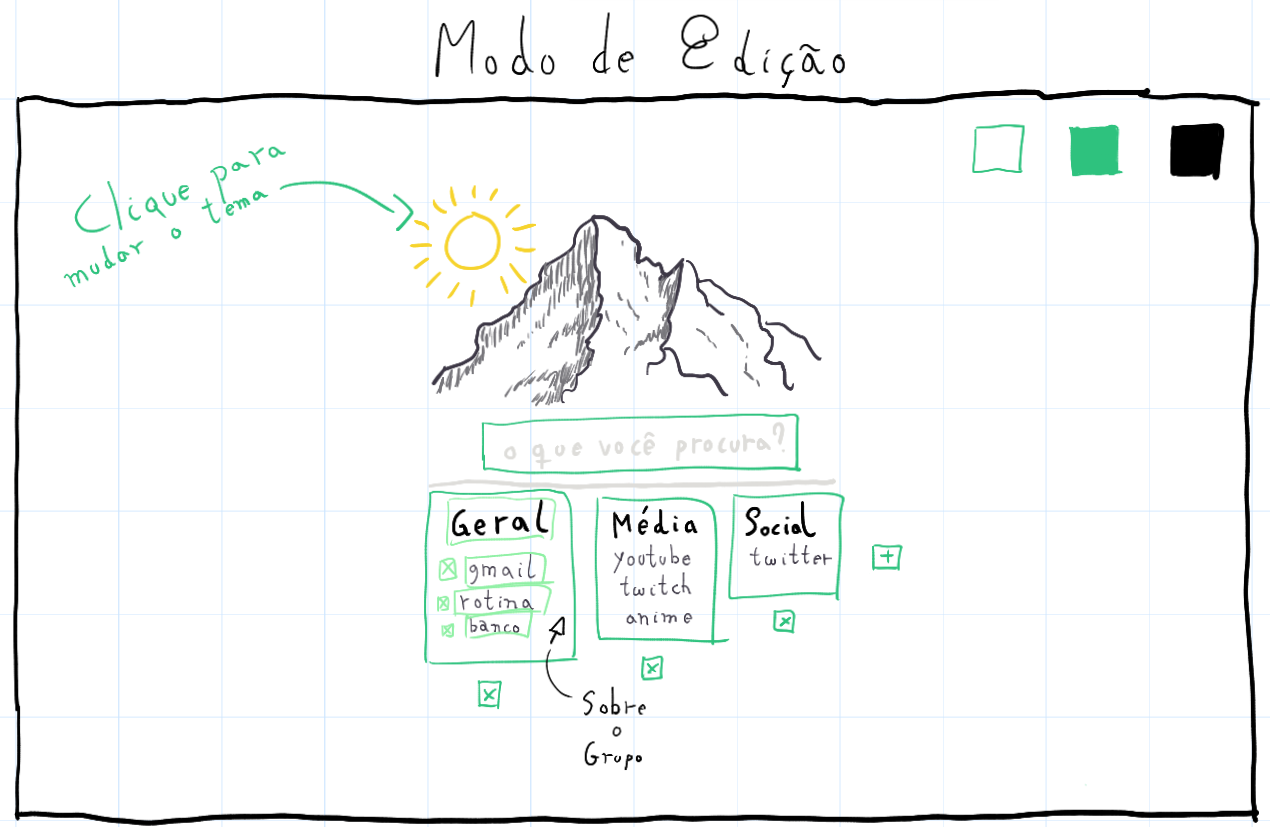 Modo de Edição
Clique para
mudar o tema
o que você procura?
Geral
gmail
rotina
banco
Média
youtube
twitch
anime
Social
twitter
+
Sobre
o
Grupo